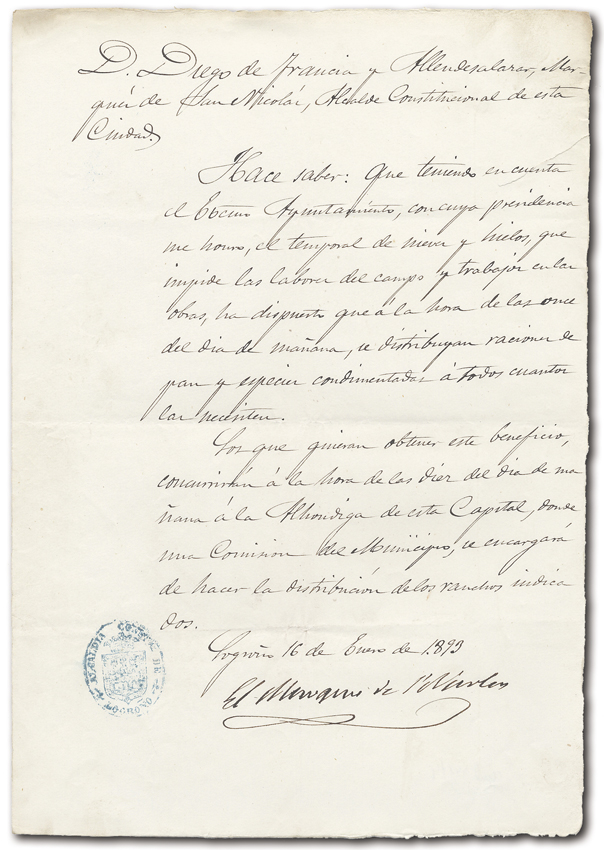 D. Diego de Francia y Allendesalazar, Mar-
qués de San Nicolás, Alcalde Constitucional de esta
Ciudad,
Hace saber: Que teniendo en cuenta
el Excmo Ayuntamiento, con cuya presidencia
me honro, el temporal de nieves y hielos, que
impide las labores del campo y trabajos en las
obras, ha dispuesto que á la hora de las once
del dia de mañana, se distribuyan raciones de
pan y especies condimentadas á todos cuantos
las necesiten.
Los que quieran obtener este beneficio,
concurrirán á la hora de las diez del dia de ma
ñana á la Alhondiga de esta Capital, donde
una Comision del Municipio, se encargará
de hacer la distribución de los ranchos indica
dos.
Logroño 16 de Enero de 1893
El Marques de S. Nicolas
ALCALDIA CONSTAL. DE LOGROÑO